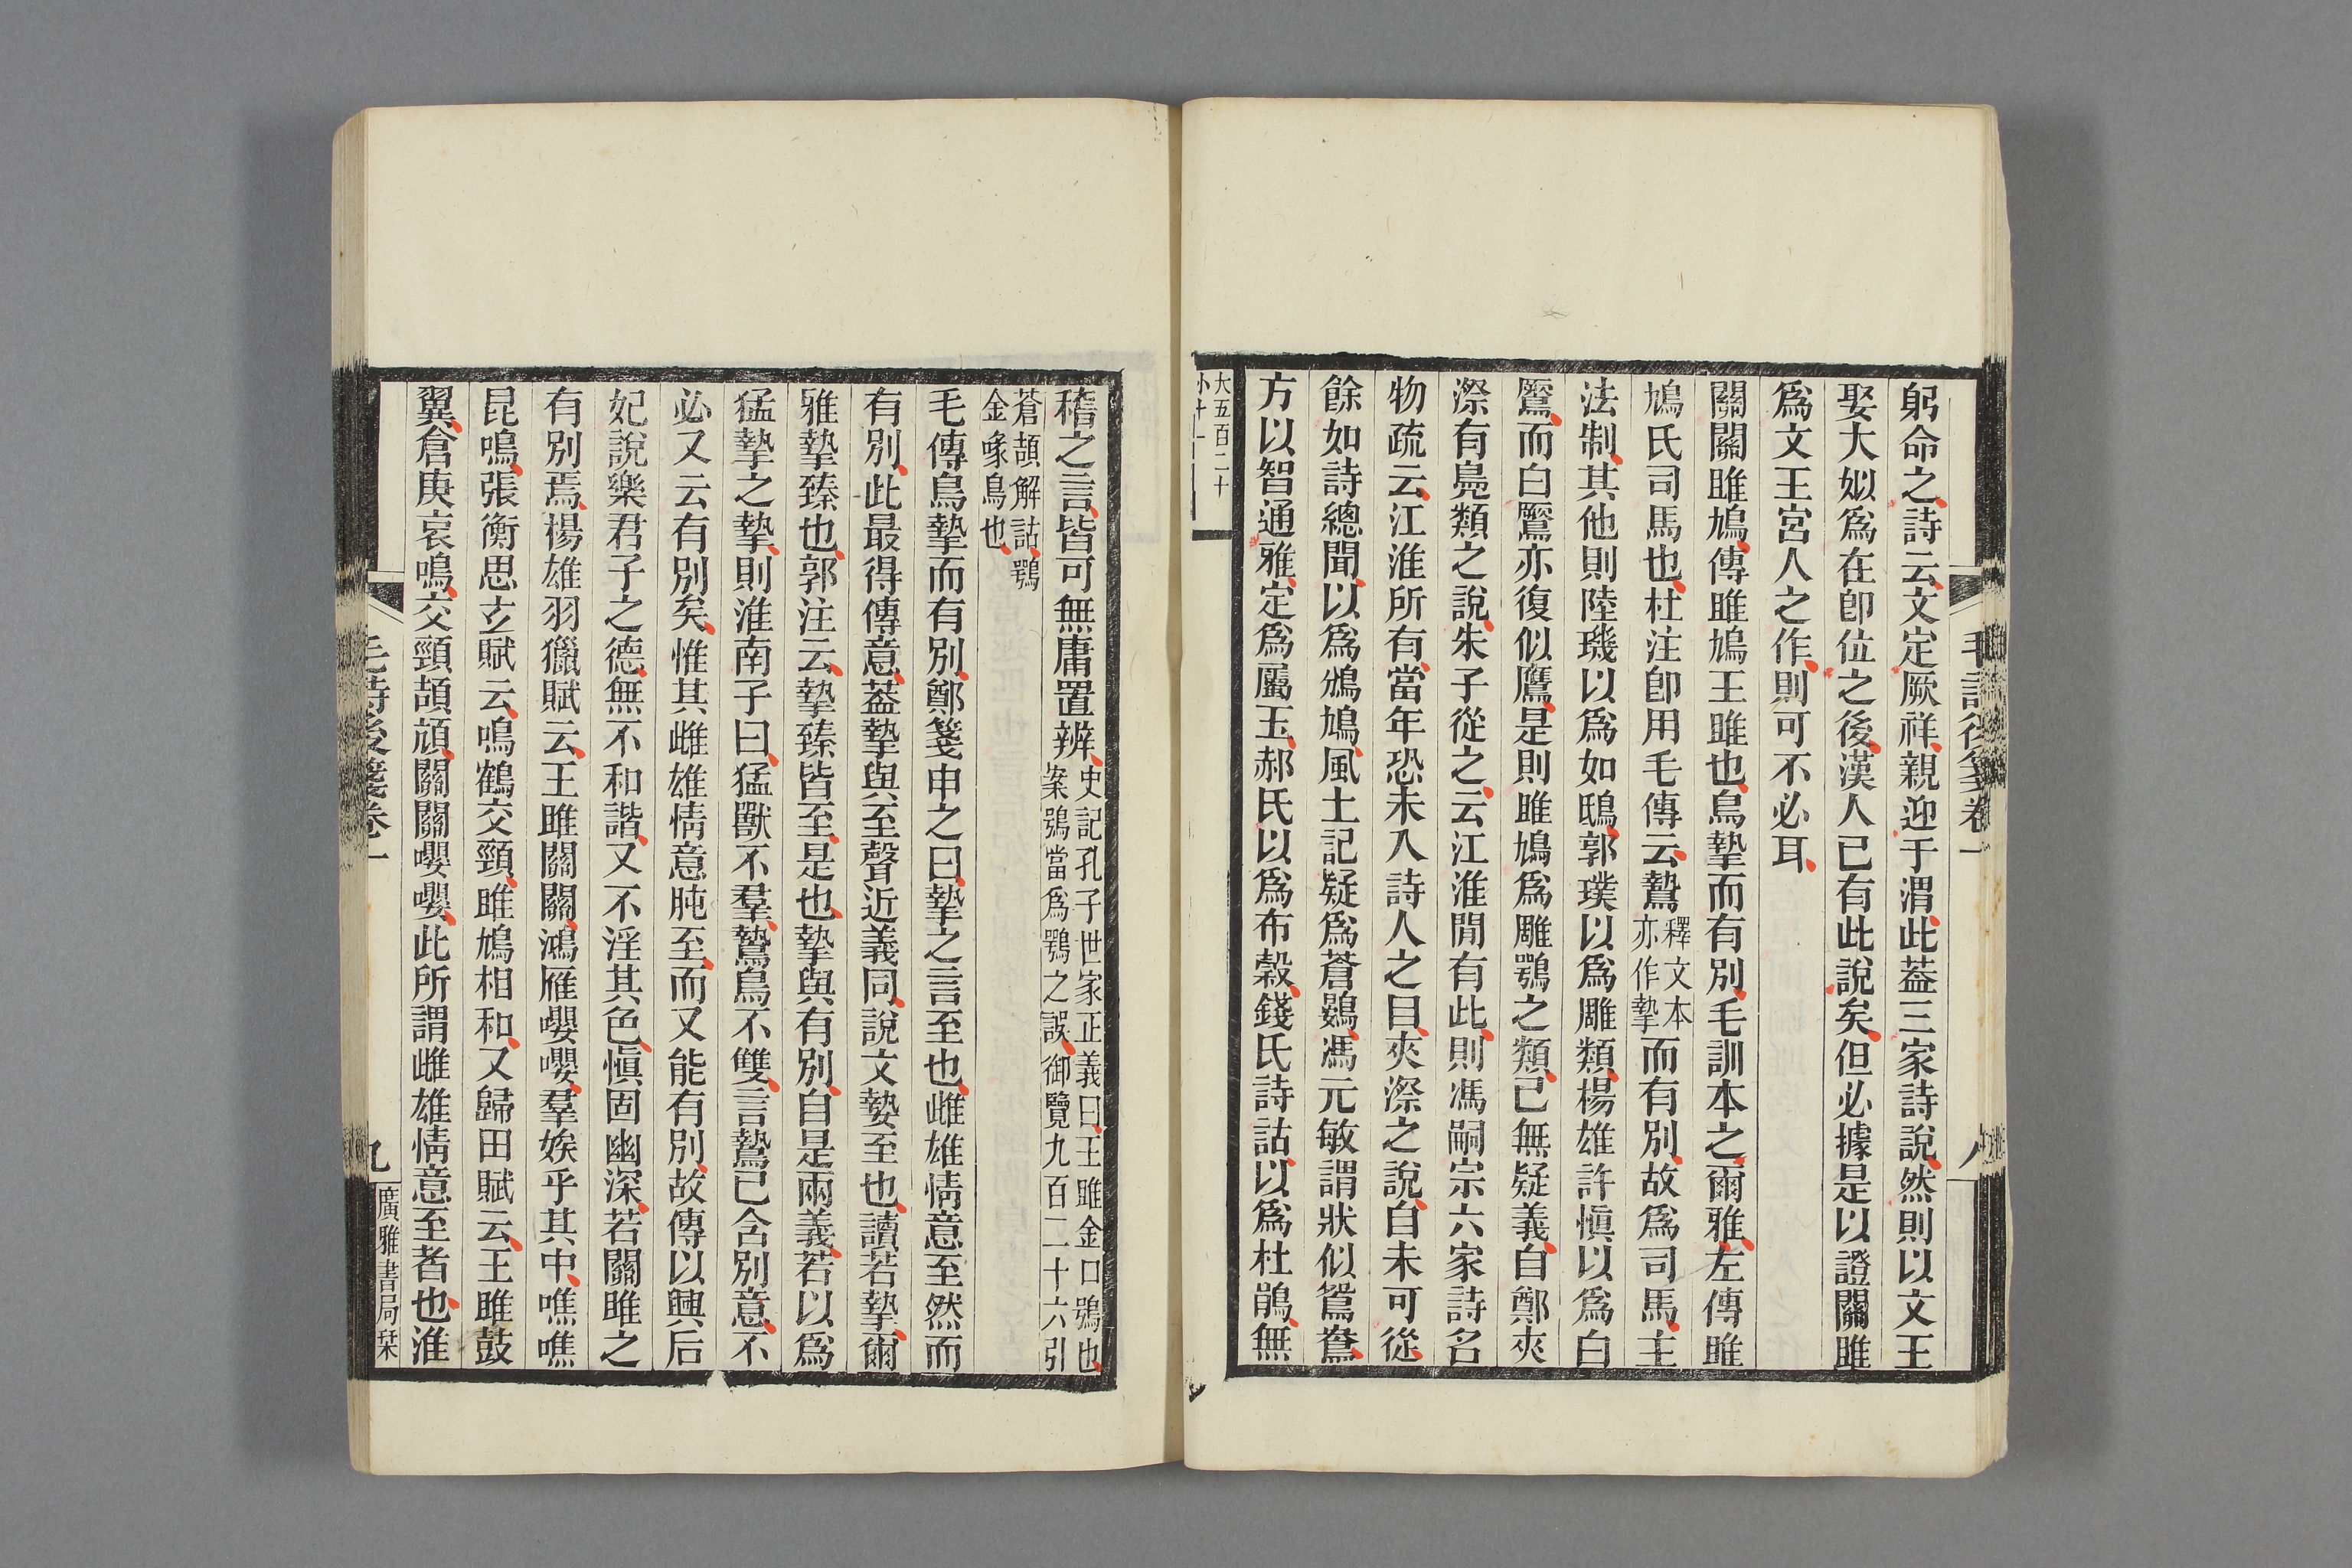 毛詩後箋卷一
八
躬命之詩云文定厥祥親迎于渭此葢三家詩說然則以文王
娶大姒爲在卽位之後漢人已有此說矣但必據是以證關雎
爲文王宮人之作則可不必耳
關關雎鳩傳雎鳩王雎也鳥摯而有別毛訓本之爾雅左傳雎
鳩氏司馬也杜注卽用毛傳云鷙釋文本亦作摯而有別故爲司馬主
法制其他則陸璣以爲如鴟郭璞以爲雕類楊雄許愼以爲白
鷢而白鷢亦復似鷹是則雎鳩爲雕鶚之類已無疑義自鄭夾
漈有鳧類之說朱子從之云江淮閒有此則馮嗣宗六家詩名
物疏云江淮所有當年恐未入詩人之目夾漈之說自未可從
餘如詩總聞以爲鳲鳩風土記疑爲蒼鷃馮元敏謂狀似鴛鴦
方以智通雅定爲屬玉郝氏以爲布穀錢氏詩詁以爲杜鵑無
大五百二十
稽之言皆可無庸置辨史記孔子世家正義曰王雎金口鴞也案鴞當爲鶚之誤御覽九百二十六引
蒼頡解詁鶚金喙鳥也
毛傳鳥摯而有別鄭箋申之曰摯之言至也雌雄情意至然而
有別此最得傳意葢摯與至聲近義同說文𡠗至也讀若摯爾
雅摯臻也郭注云摯臻皆至是也摯與有別自是兩義若以爲
猛摯之摯則淮南子曰猛獸不羣鷙鳥不雙言鷙已含別意不
必又云有別矣惟其雌雄情意肫至而又能有別故傳以興后
妃說樂君子之德無不和諧又不淫其色愼固幽深若關雎之
有別焉楊雄羽獵賦云王雎關關鴻雁嚶嚶羣娭乎其中噍噍
昆鳴張衡思玄賦云鳴鶴交頸雎鳩相和又歸田賦云王雎鼓
翼倉庚哀鳴交頸頡頏關關嚶嚶此所謂雌雄情意至者也淮
毛詩後箋卷一
九
廣雅書局栞